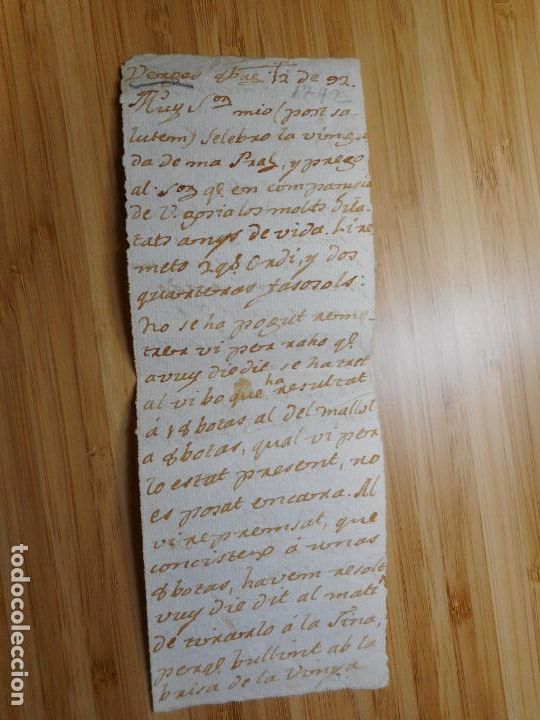 Verges 8bre 12 de 92.
1792
Muy Sor mio (post sa-
lutem) selebro la vingu-
da de ma Pral, y prego
al Sor qe. en companyia
de V. gosia los molts dila-
tats anys de vida. Li re-
meto 2 qs. Ordi, y dos
quarteras fasosols:
No se ha pogut reme-
trer vi per raho qe.
avuy die dit se ha tret
al vi bo que ha resultat
á 18 botas al del mallol
a 8 botas, qual vi per
lo estat present, no
es posat encara. Al
vi repremsat, que
concisteix á unas
8 botas, havem resolt
vuy die dit al mati
de tirarlo á la Tina,
perqe. bullint ab la
brisa de la Vinya
todocoleccion.net